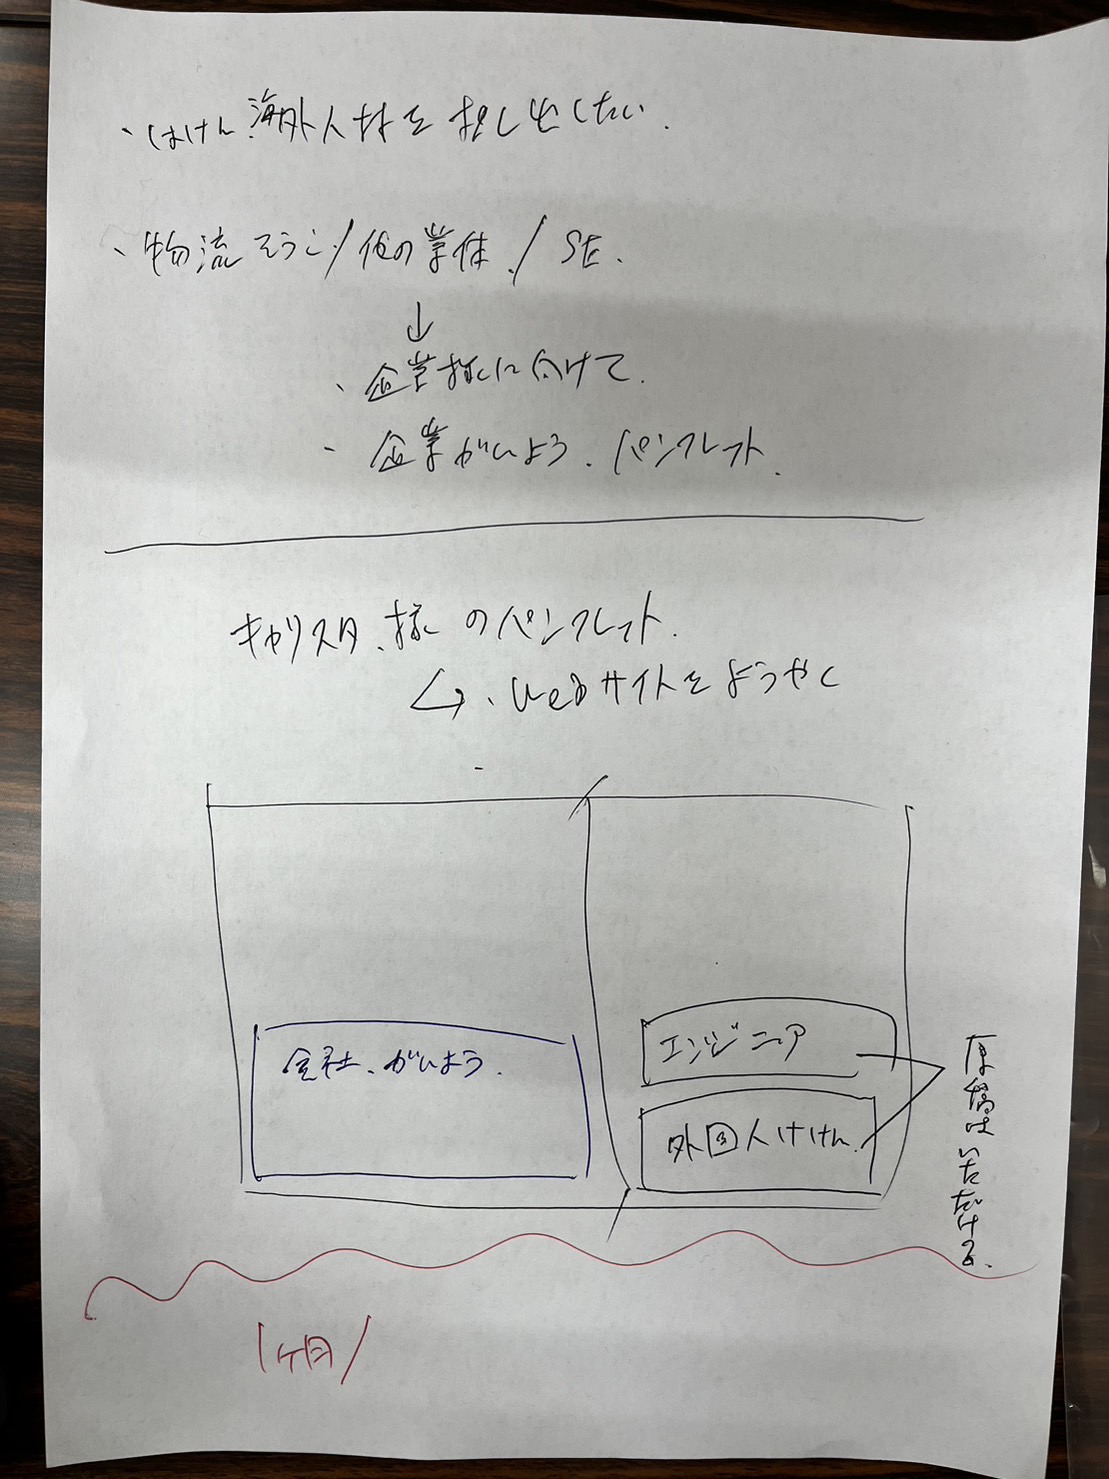 ・はけん海外人材を押し出したい.
・物流そうこ/他の業体./SE.
↓
・企業様に向けて.
・企業がいよう.パンフレット.
キャリスタ.様のパンフレット.
↳・Webサイトをようやく
会社.がいよう.
エンジニア
外国人はけん.
原稿はいただける.
1ヶ月/